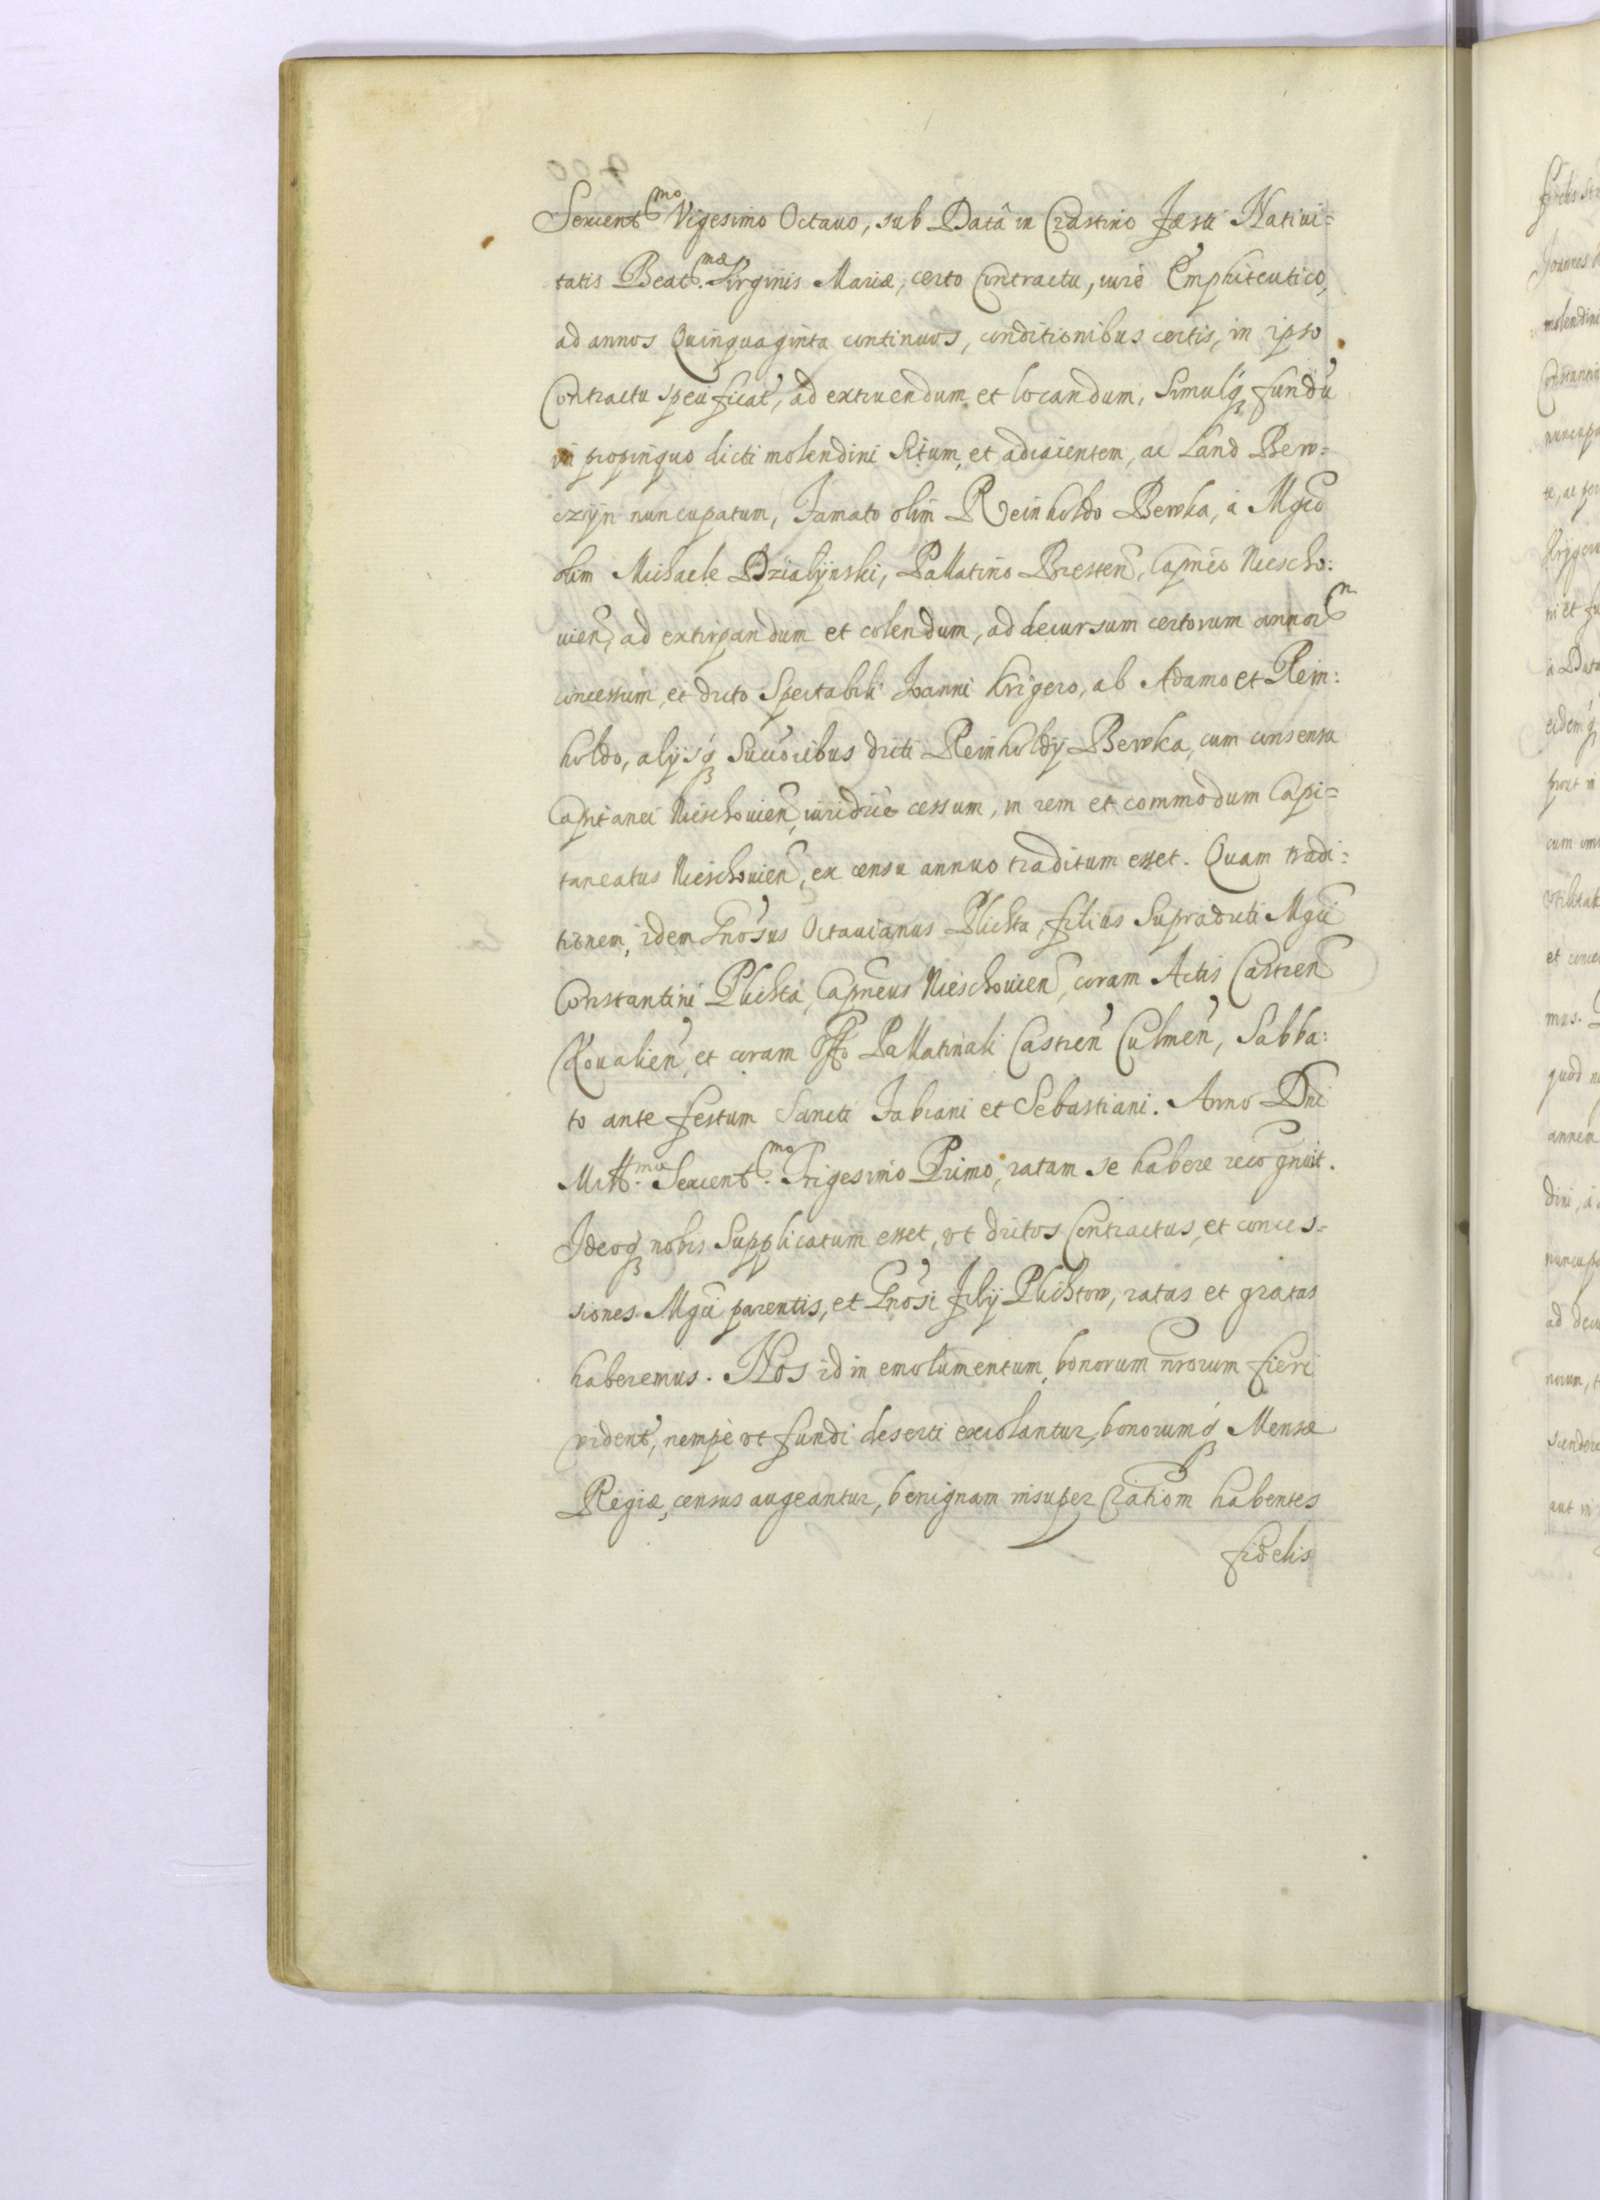 Sexcent.mo Vigesimo Octauo, sub Datâ in Crastino Festi Natiui=
tatis Beat.mæ Virginis Mariæ, certo Contractu, iure Emphiteutico,
ad annos Quinquaginta continuos, conditionibus certis, in ipso
Contractu specificat, ad extruendum et locandum, Simulq fundũ
in propinquo dicti molendini Situm, et adiacientem, ac Land Bew=
czijn nuncupatum, Famato olim Reinholdo Bewka, à Mgco
olim Michaele Dzialijnski, Pallatino Bresten, Capneo Niescho:
uien, ad extirpandum et colendum, ad decursum certorum annor
concessum, et dicto Spectabili Joanni Krigero, ab Adamo et Rein:
holdo, alijsq Succoribus dicti Reinholdij Bewka, cum consensu
Capitanei Nieschouien, iuridice cessum, in rem et commodum Capi=
taneatus Nieschouien, ex censu annuo traditum esset. Quam tradi:
tionem, idem Gnosus Octauianus Plichta, filius Supradicti Mgci
Constantini Plichta, Capneus Nieschouien, coram Actis Castren
Koualien, et coram Offo Pallatinali Castren Culmen, Sabba:
to ante festum Sancti Fabiani et Sebastiani. Anno Dni
Mill.mo Sexcent.mo Trigesimo Primo, ratam se habere recognuit.
Ideoq nobis Supplicatum esset, vt dictos Contractus, et conces=
siones Mgci parentis, et Gnosi filij Plichtow, ratas et gratas
haberemus. Nos id in emolumentum, bonorum nrorum fieri
vident, nempè vt fundi deserti excolantur, bonorumq Mensæ
Regiæ, census augeantur, benignam insuper rationem habentes
fidelis